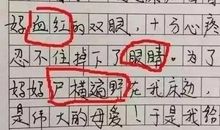 好血红的双眼,十分心疼
忍不住掉下了眼睛。为了
好好尸横遍野在我床边,
是伟大的母爱!于是我给